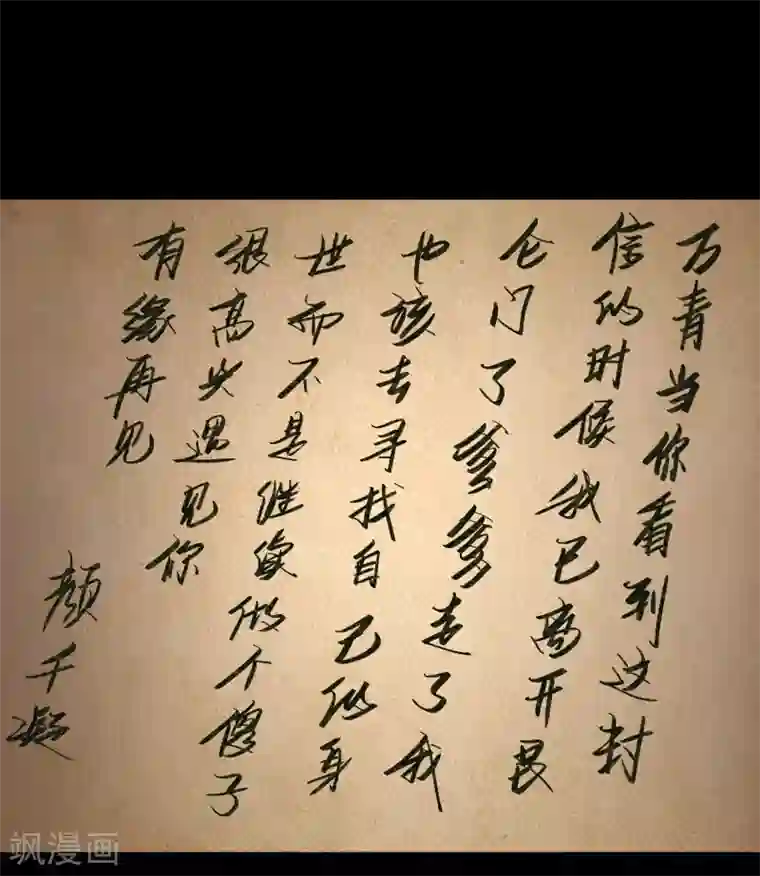 万青当你看到这封
信的时候我已离开艮
仑门了爹爹走了我
也该去寻找自己的身
世而不是继续做个傻子
很高兴遇见你
有缘再见
颜千凝
飒漫画